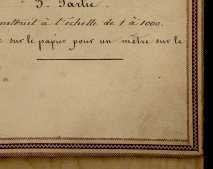 3e Partie.
à l'échelle de 1 à 1000.
sur le papier pour un mètre sur le